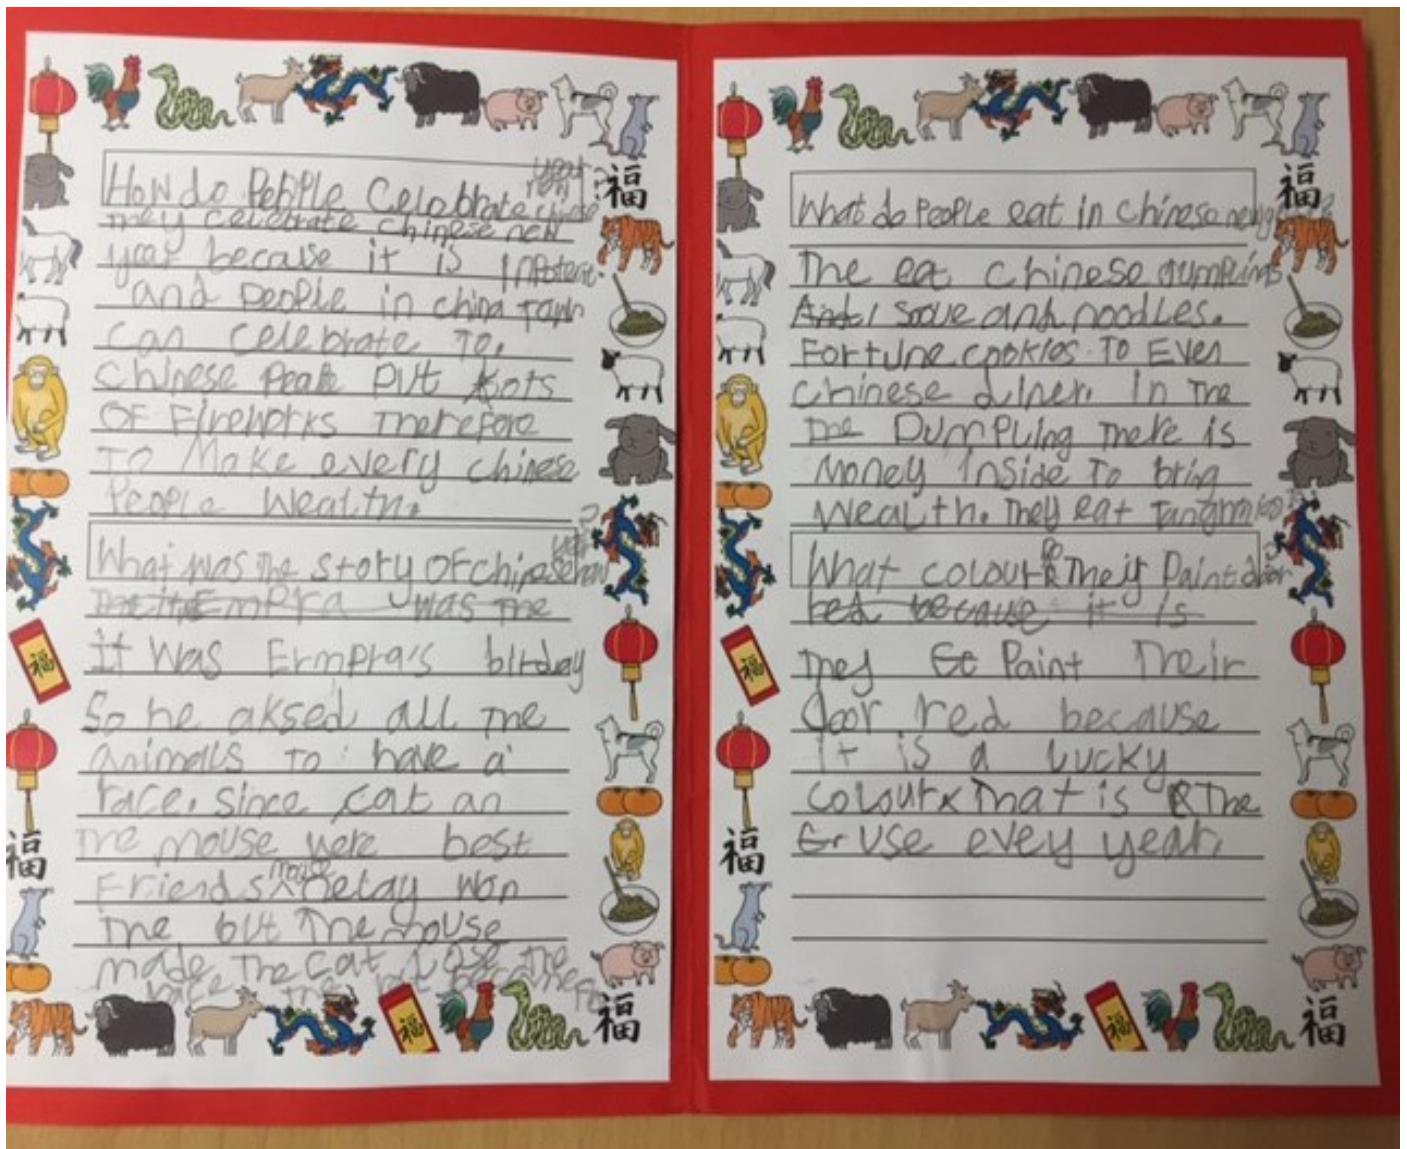 How do People Celobrate chinese
new
year
they celebrate chinese new
year because it is inpotent.
and people in china town
can celebrate to.
chinese peale put lots
OF Fireworks Therefore
To Make every chinese
People Wealth.
What was the story OF chinese new
year?
it Was Ermpra's birday
So he aksed all the
animals to have a
race. Since cat an
The mouse were best
Friends mouse
won
the but The mouse
made The cat lose the
race the
福
福
福
福
福
What do People eat in chinese new
The eat chinese dumplins
And soue and noodles.
Fortune cookies To Even
chinese diner. In The
the Dumpling There is
money inside To bring
Wealth. They eat
What colour do They Paint door
red because it is
They Paint Their
door red because
it is a lucky
colour That is The
use evey year.
福
福
福
福
福